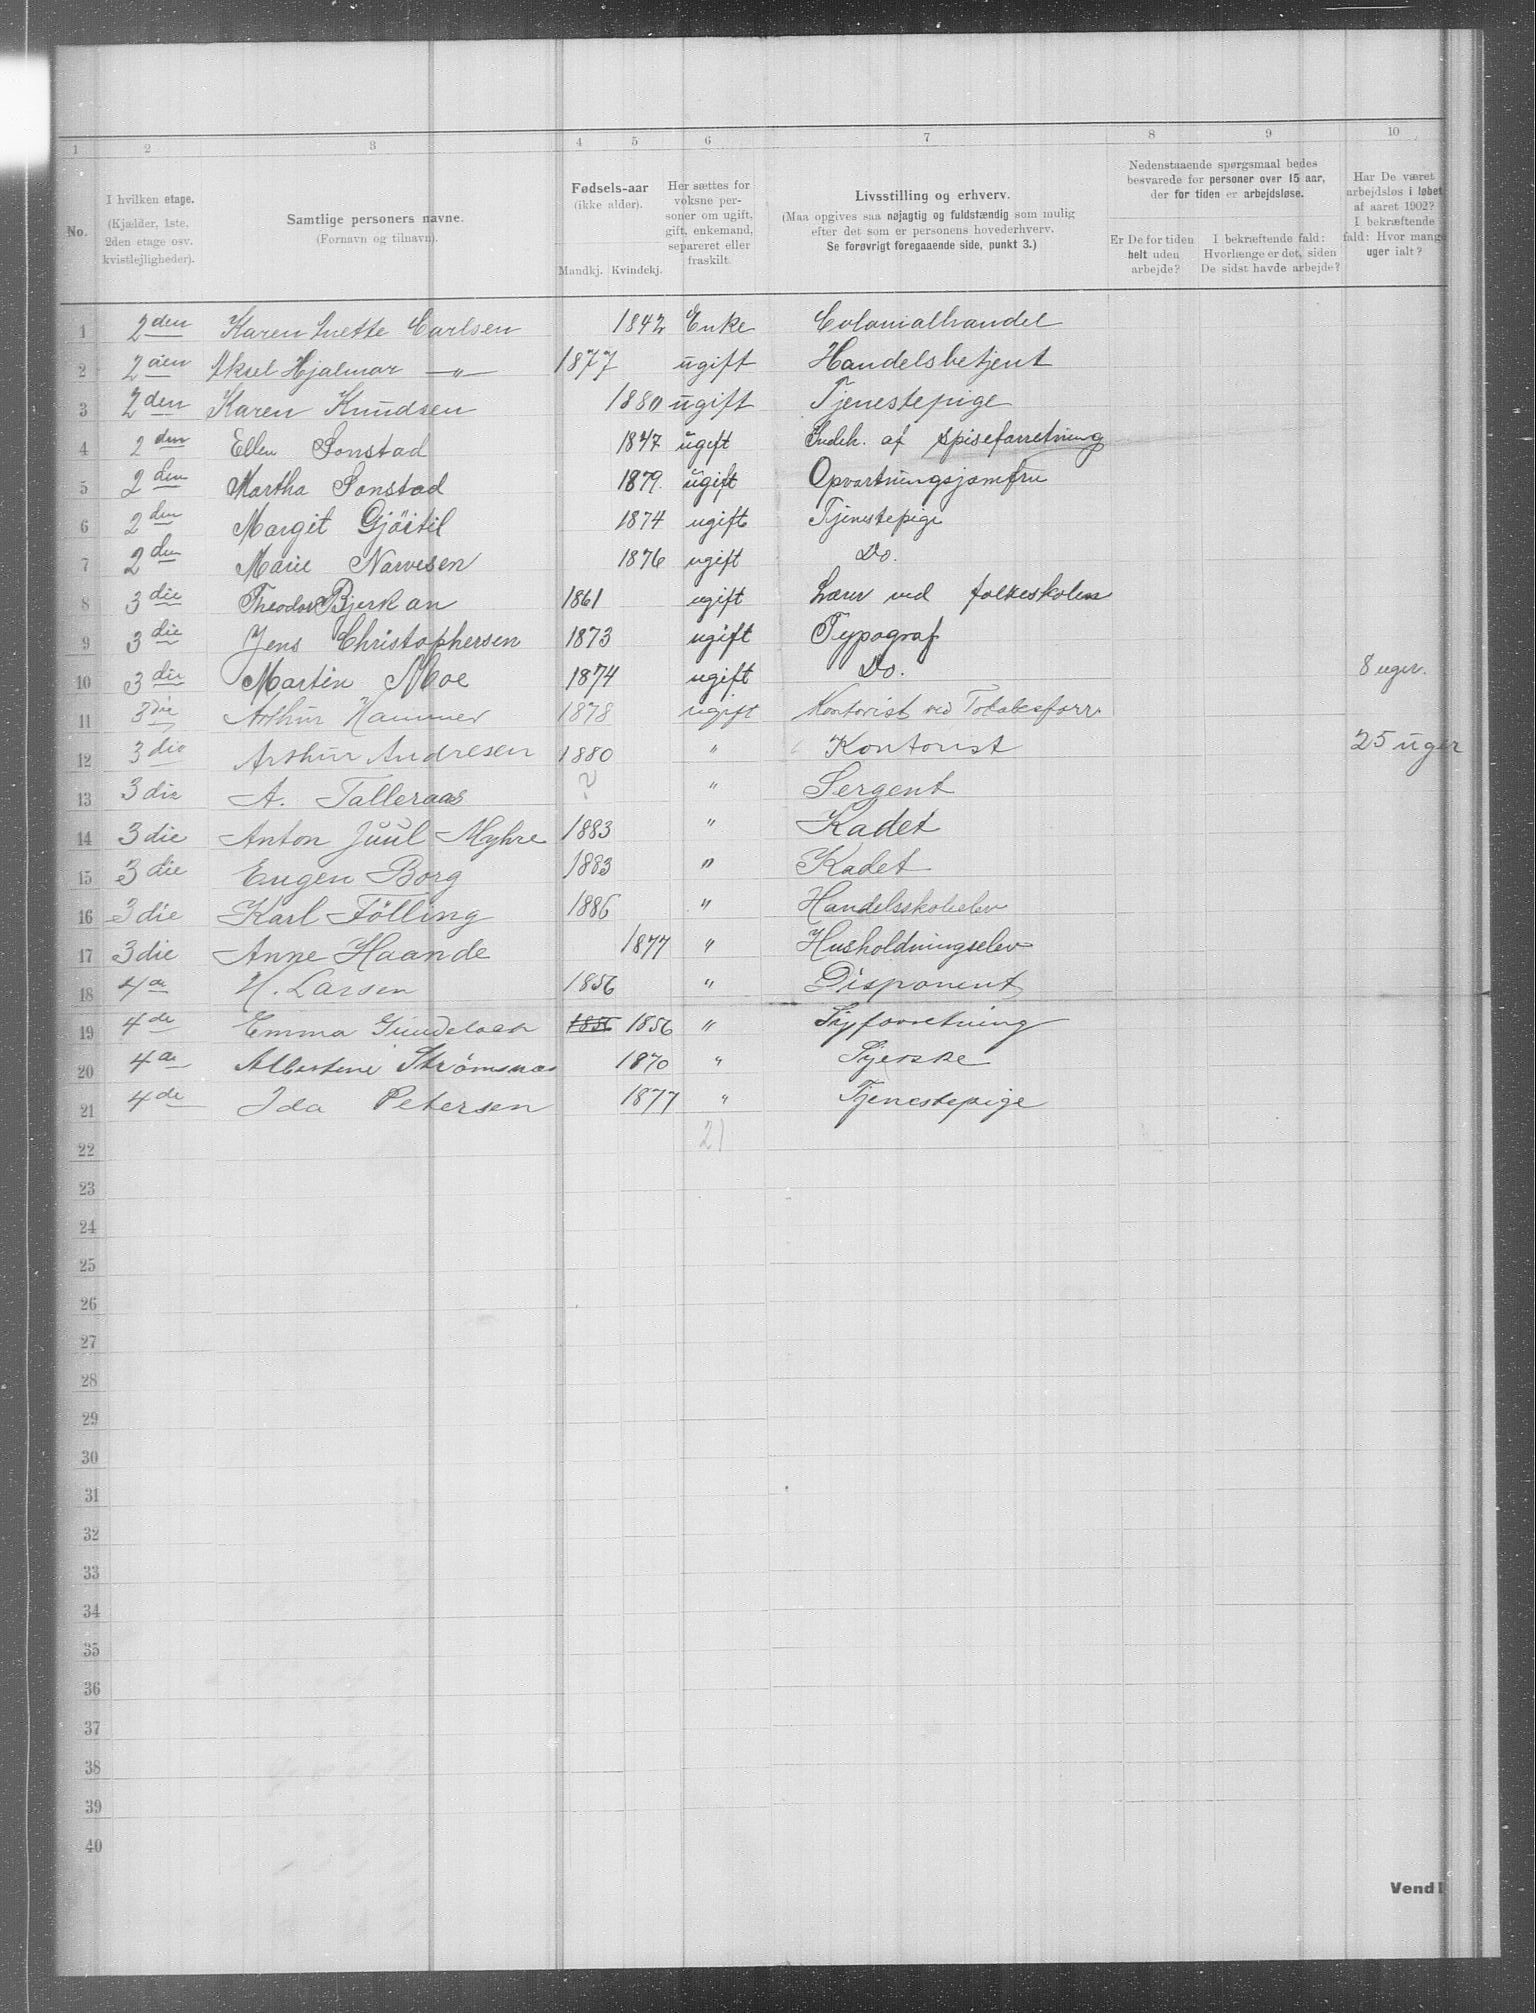 1 2 3 4 5 6 7 8 9 10
No.
I hvilken etage.
(Kjælder, 1ste,
2den etage osv.
kvistlejligheder).
Samtlige personers navne.
(Fornavn og tilnavn).
Fødsels-aar
(ikke alder).
Mandkj. Kvindekj.
Her sættes for
voksne per-
soner om ugift,
gift, enkemand,
separeret eller
fraskilt.
Livsstilling og erhverv.
(Maa opgives saa nøjagtig og fuldstændig som mulig
efter det som er personens hovederhverv.
Se forøvrigt foregaaende side, punkt 3.)
Nedenstaaende spørgsmaal bedes
besvarede for personer over 15 aar,
der for tiden er arbejdsløse.
Er De for tiden
helt uden
arbejde?
I bekræftende fald:
Hvorlænge er det, siden
De sidst havde arbejde?
Har De været
arbejdsløs i løbet
af aaret 1902?
I bekræftende
fald: Hvor mange
uger ialt?
1 2den Karen Carlsen 1842 Enke Colonialhandel
2 2den Aksel Hjalmar —"— 1877 ugift Handelsbetjent
3 2den Karen Knudsen 1880 ugift Tjenestepige
4 2den Ellen Sonstad 1847 ugift Indeh. af spiseforretning
5 2den Martha Sonstad 1879. ugift Opvartningsjomfru
6 2den Margit Gjöitil 1874 ugift Tjenestepige
7 2den Marie Narvesen 1876 ugift Do.
8 3die Theodor Bjerkan 1861 ugift Lærer ved folkeskolen
9 3die Jens Christophersen 1873 ugift Typograf
10 3die Martin Moe 1874 ugift Do. 8 uger.
11 3die Arthur Hammer 1878 ugift Kontorist ved
12 3die Arthur Andresen 1880 " Kontorist 25 uger
13 3die A. Talleraas ? " Sergent
14 3die Anton Juul Myhre 1883 " Kadet
15 3die Eugen Borg 1883 " Kadet
16 3die Karl Fölling 1886 " Handelsskoleelev
17 3die Anne Haande 1877 " Husholdningselev
18 4de H. Larsen 1856 " Disponent
19 4de Emma 1856 1856 " Syforretning
20 4de Albertine Strømsnæs 1870 " Syerske
21 4de Ida Petersen 1877 " Tjenestepige
22 21
23
24
25
26
27
28
29
30
31
32
33
34
35
36
37
38
39
40
Vend!